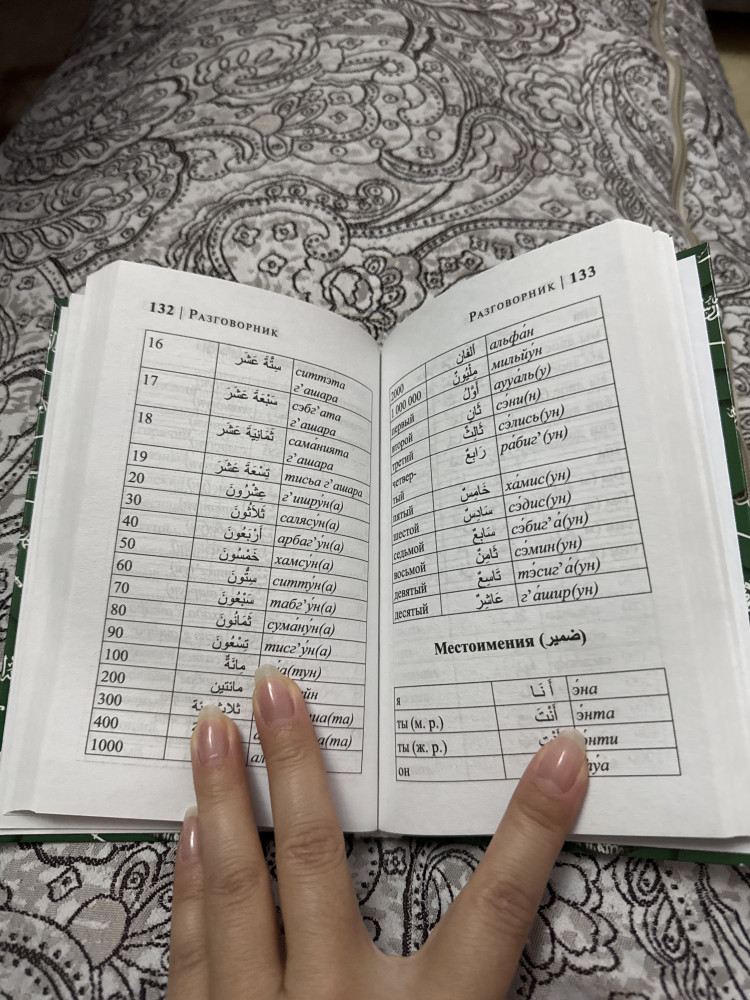 132 | Разговорник
16 سِتَّةَ عَشَر ситтэта
г’ашара
17 سَبْعَةَ عَشَرَ сэбг’ата
г’ашара
18 ثَمَانِيَةَ عَشَر сама́нията
г’ашара
19 تِسْعَةَ عَشَرَ тисъа г’ашара
20 عِشْرُونَ г’ишру́н(а)
30 ثَلاَثُونَ салясу́н(а)
40 أَرْبَعُونَ арбаг’у́н(а)
50 خَمْسُونَ хамсун(а)
60 سِتُّونَ ситту́н(а)
70 سَبْعُونَ табг’у́н(а)
80 ثَمَانُونَ сума́ну́н(а)
90 تِسْعُونَ тисг’у́н(а)
100 مِائَةٌ
200 مائتين
300
400
1000
Разговорник | 133
2000 أَلْفَان альфа́н
1 000 000 مِلْيُونٌ мильйу́н
первый أَوَّلُ аууаль(у)
второй ثَانِ сэ́ни(н)
третий ثَالِثٌ сэ́лисъ(ун)
четвер- رَابِعٌ ра́биг’(ун)
тый
пятый خَامِسٌ ха́мис(ун)
шестой سَادِسٌ сэ́дис(ун)
седьмой سَابِعٌ сэ́биг’а́(ун)
восьмой ثَامِنٌ сэ́мин(ун)
девятый تَاسِعٌ тэ́сиг’а́(ун)
десятый عَاشِرٌ г’а́шир(ун)
Местоимения (ضمير)
я أَنَا э́на
ты (м. р.) أَنْتَ э́нта
ты (ж. р.) э́нти
он